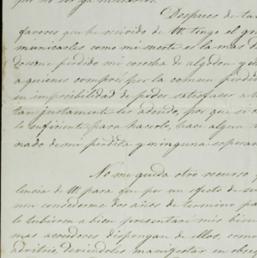 por no ser ya
Despues de tan
favores que he recivido de U. tengo el gra
manicarles como mi suerte es la mas D
perdido mi cosecha de algodon y
a quienes compré por la comun perdi
en imposibilidad de poder satisfacer a U.
tan justamente les adeudo, por que si
lo suficiente para hacerlo, haci alguna
nado de mi pérdida y ninguna esperan
No me queda otro recurso q
lencia de U. para que por un efecto de su
un considerarme dos años de termino pa
lo tubieren a bien presentare mis bien
mas acredores dispongan de ellos, como
deviendoles manifestar en obseq